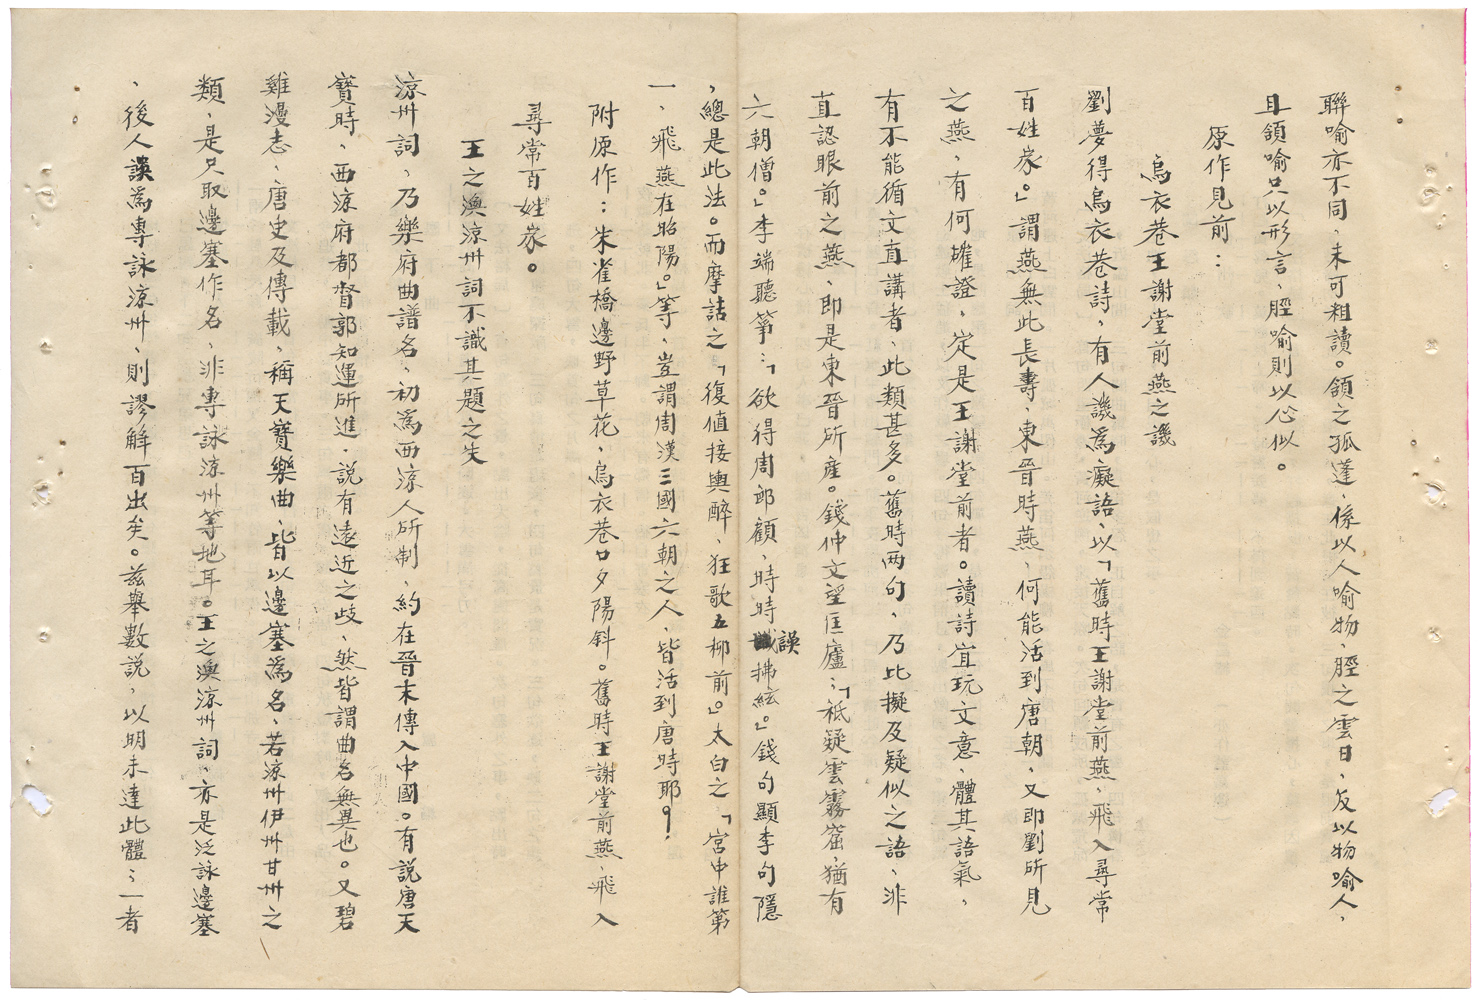 聯喻亦不同、未可粗讀。領之孤蓬、係以人喻物、脛之雲日、反以物喻人、
且領喻只以形言、脛喻則以心似。
原作見前：
烏衣巷王謝堂前燕之譏
劉夢得烏衣巷詩、有人譏為癡語、以「舊時王謝堂前燕、飛入尋常
百姓家。」謂燕無此長壽、東晉時燕、何能活到唐朝、又即劉所見
之燕、有何確證、定是王謝堂前者。讀詩宜玩文意、體其語氣、
有不能循文直講者、此類甚多。舊時两句、乃比擬及疑似之語、非
直認眼前之燕、即是東晉所產。錢仲文望匡廬：「祗疑雲霧窟、猶有
六朝僧。」李端聽箏：「欲得周郎顧、時時誤拂絃。」錢句顯李句隱
、總是此法。而摩詰之「復值接輿醉、狂歌五柳前。」太白之「宮中誰第
一、飛燕在昭陽。」等、豈謂周漢三國六朝之人、皆活到唐時耶？！
附原作：朱雀橋邊野草花、烏衣巷口夕陽斜。舊時王謝堂前燕、飛入
尋常百姓家。
王之渙涼州詞不識其題之失
涼州詞、乃樂府曲譜名、初為西涼人所制、約在晉末傳入中國。有說唐天
寶時、西涼府都督郭知運所進、說有遠近之歧、然皆謂曲名無異也。又碧
雞漫志、唐史及傳載、稱天寶樂曲、皆以邊塞為名、若涼州伊州甘州之
類、是只取邊塞作名、非專詠涼州等地耳。王之渙涼州詞、亦是泛詠邊塞
、後人誤為專詠涼州、則謬解百出矣。茲舉數說，以明未達此體：一者